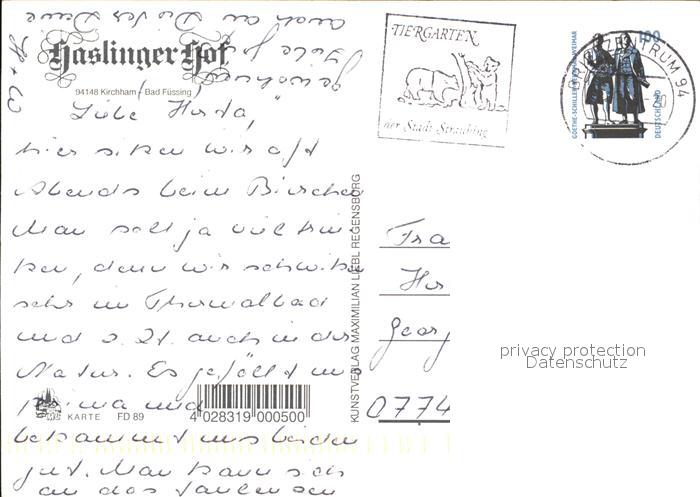 Haslinger Hof
94148 Kirchham / Bad Füssing
Liebe Herta,
hier sitzen wir oft
Abends beim Bierchen
Man soll ja viel trin-
ken, denn wir schwitzen
sehr im Thermalbad
und z. Zt. auch in der
Natur. Es gefällt uns
prima und
bekommt uns beiden
gut. Man kann sich
an das Faulensein
gewöhnen.
Liebe Grüße
auch an Dieter Deine
KARTE FD 89
4 028319 000500
KUNSTVERLAG MAXIMILIAN LIEBL REGENSBURG
TIERGARTEN
der Stadt Straubing
BRIEFZENTRUM 94
GOETHE-SCHILLER-DENKMAL WEIMAR
100
DEUTSCHLAND
Fra
Her
Georg
0774
privacy protection
Datenschutz